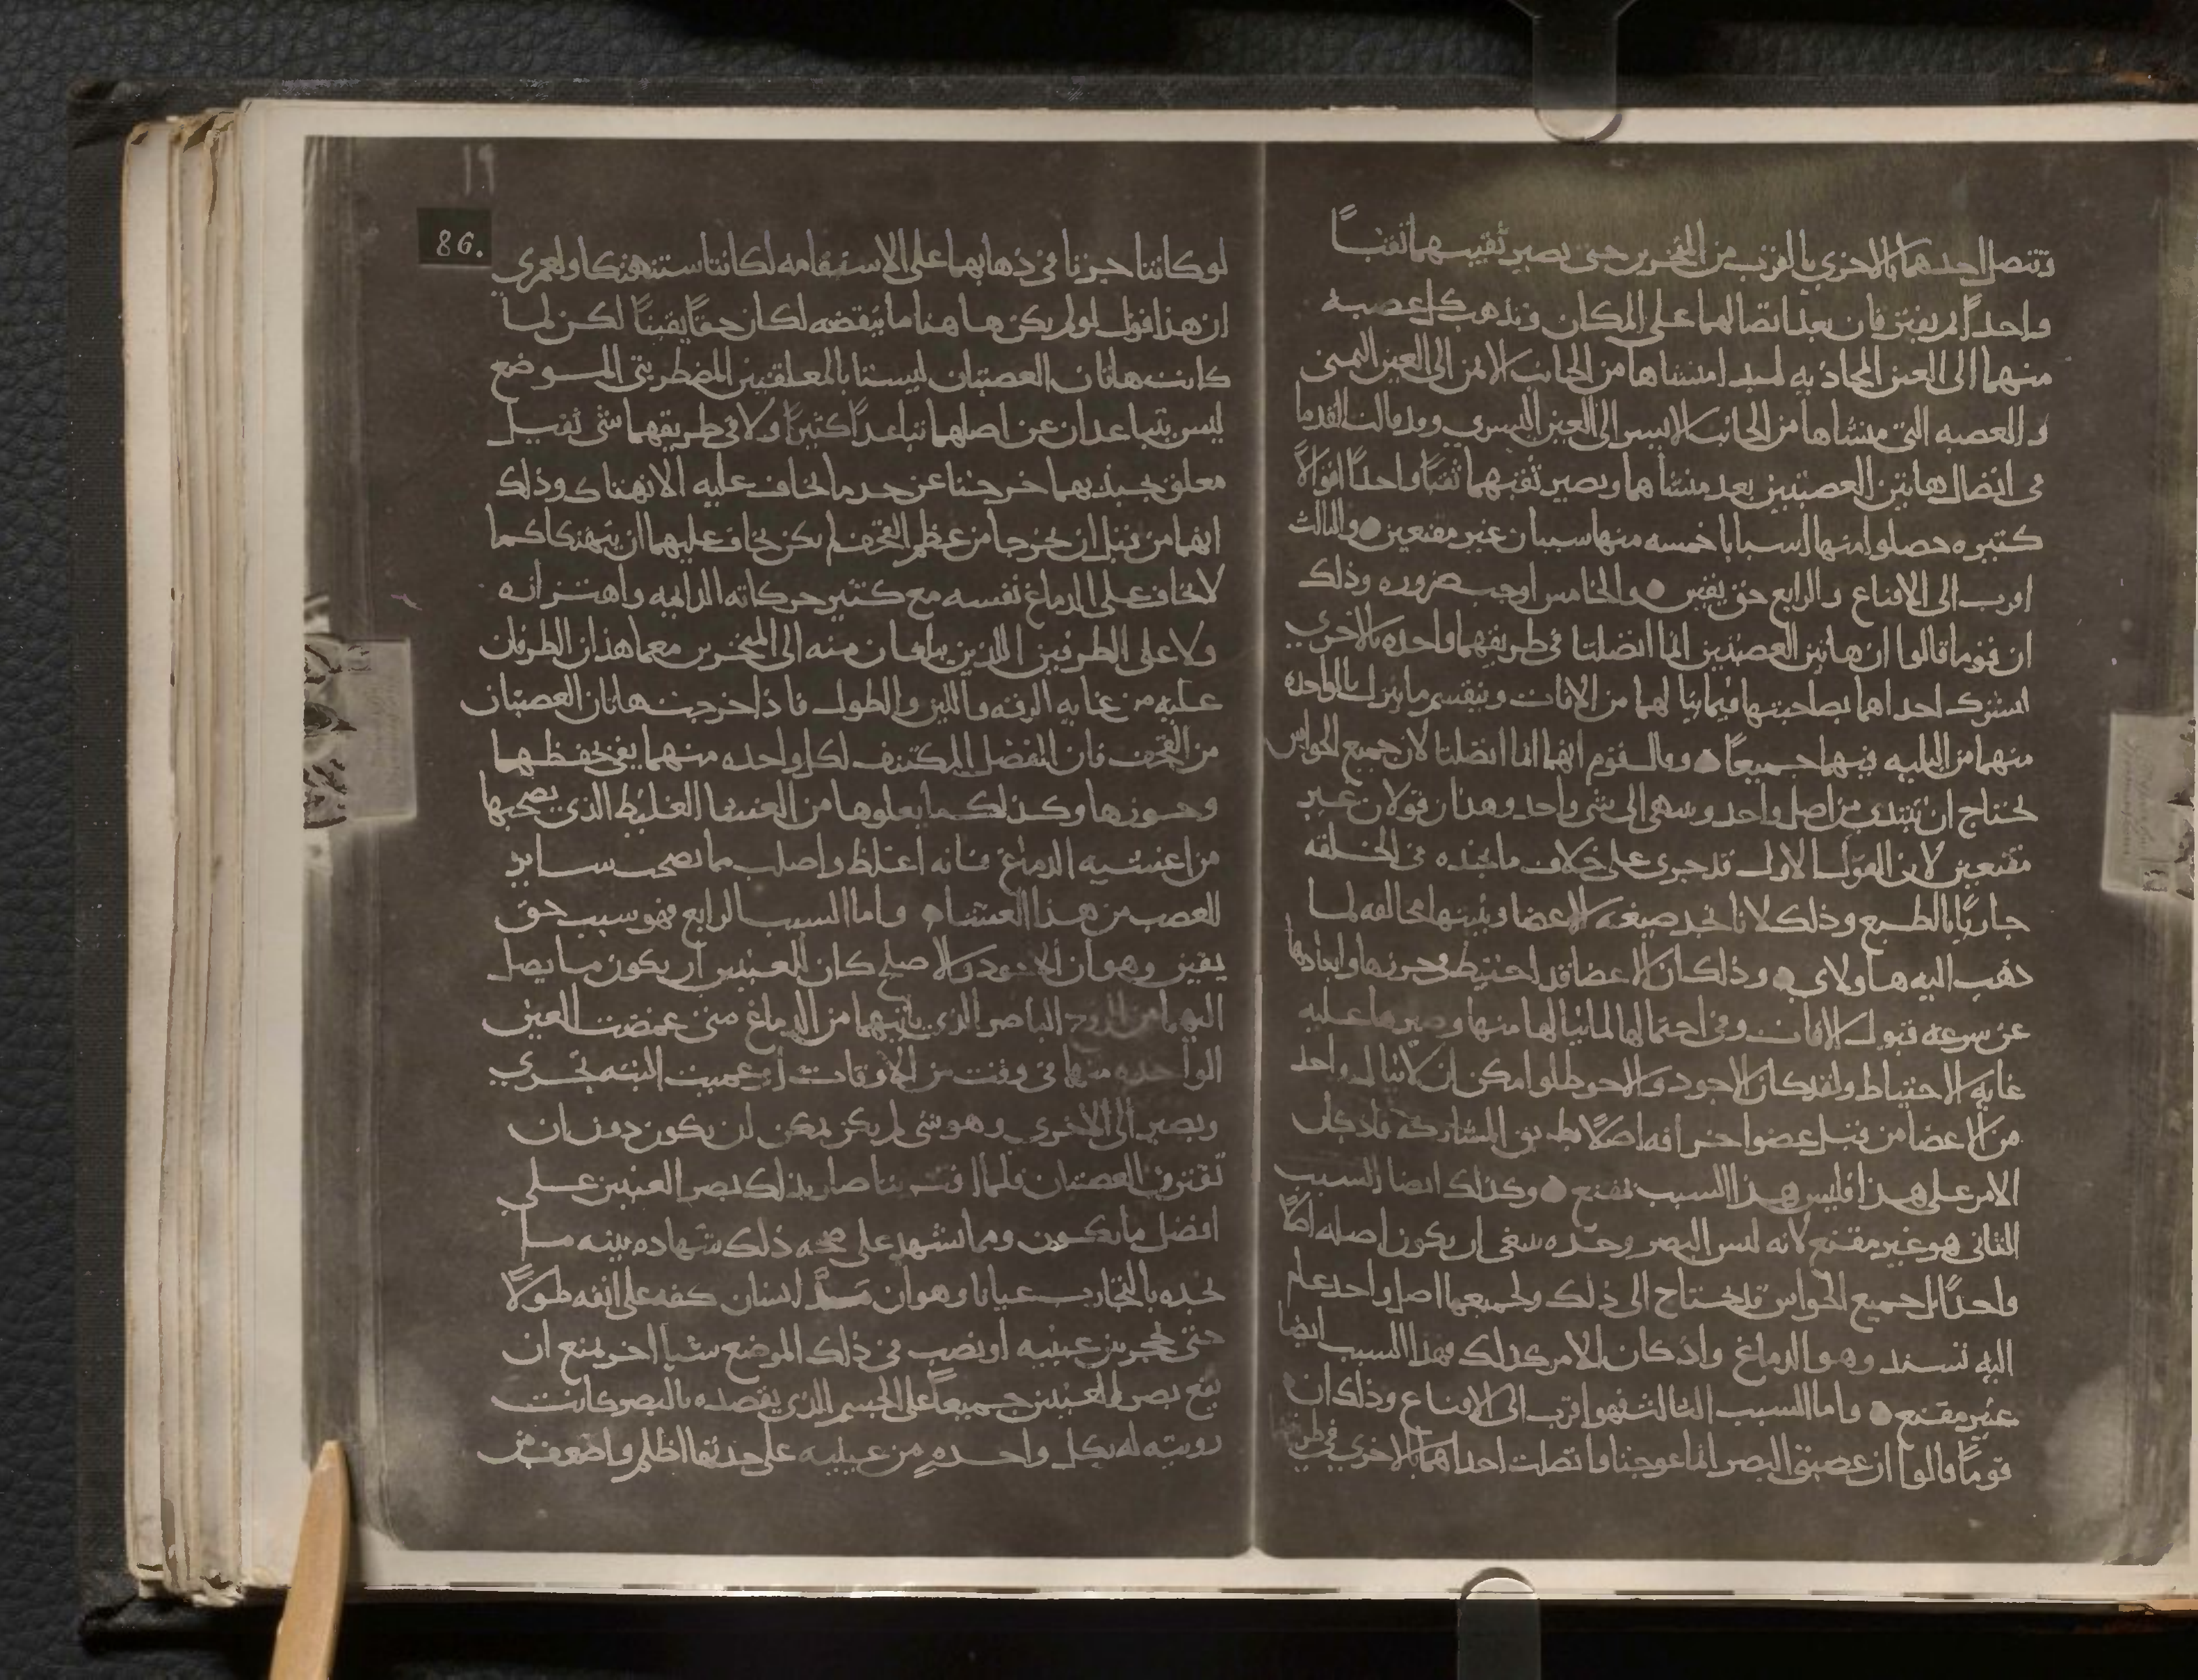 وتتصل احدهما بالاخرى بالقرب من المنخرين حتى يصير ثقبيهما ثقبًا
واحدًا لم يفترقان بعد اتصالهما على المكان وتذهب كل عصبه
منهما الى العين المحاذيه لمبدا منشاها من الجانب الايمن الى العين اليمنى
والعصبه التى منشاها من الجانب الايسر الى العين اليسرى وقد قالت القدما
فى اتصال هاتين العصبتين بعد منشاهما ويصير ثقبهما ثقبًا واحدًا اقوالاً
كثيره حصلوا منها اسبابا خمسه منها سببان غير مقنعين والثالث
اقرب الى الاقناع والرابع حق يقين والخامس اوجب ضروره وذلك
ان قوما قالوا ان هاتين العصبتين انما اتصلتا فى طريقهما واحده بالاخرى
لتشترك احداهما بصاحبتها فيما ينالهما من الافات وينقسم ما ينزل بالواحده
منهما من البليه فيهما جميعًا وقال قوم انهما انما اتصلتا لان جميع الحواس
تحتاج ان تبتدى من اصل واحد وتنتهى الى شى واحد وهذان قولان غير
مقنعين لان القول الاول قد جرى على خلاف ما نجده فى الخلقه
جاريًا بالطبع وذلك لانا نجد صيغه الاعضا وبنيتها مخالفه لما
ذهب اليه هاولاى وذلك ان الاعضا قد احتيط فى حرزها وابعادها
عن سرعه قبول الافات وفى احتمالها لما ينالها منها وصيرها عليه
غايه الاحتياط ولقد كان الاجود والاحوط لو امكن ان لا ينال واحد
من الاعضا من قبل عضو اخر افه اصلاً بطريق المشاركه فاذ كان
الامر على هذا فليس هذا السبب بمقنع وكذلك ايضا السبب
الثانى هو غير مقنع لانه ليس البصر وحده ينبغى ان يكون اصله اصلاً
واحدًا بل جميع الحواس قد تحتاج الى ذلك ولجميعها اصل واحد عام
اليه تستند وهو الدماغ واذ كان الامر كذلك فهذا السبب ايضا
غير مقنع واما السبب الثالث فهو اقرب الى الاقناع وذلك ان
قومًا قالوا ان عصبتى البصر انما عوجتا واتصلت احداهما بالاخرى فى
١٩
86.
لو كانتا جرتا فى ذهابهما على الاستقامه لكانتا ستنهتكا ولعمرى
ان هذا قول لو لم يكن ها هنا ما ينقضه لكان حقًا يقينًا لكن لما
كانت هاتان العصبتان ليستا بالمعلقتين المضطربتى الموضع
ليس يتباعدان عن اصلهما تباعدًا كثيرًا ولا فى طريقهما شى ثقيل
معلق يجذبهما خرجتا عن حد ما يخاف عليه الانهتاك وذلك
انهما من قبل ان يخرجا من عظم القحف لم يكن يخاف عليهما ان ينهتكا كما
لا يخاف على الدماغ نفسه مع كثير حركاته الدايمه واهتزازه
ولا على الطرفين اللذين يبلغان منه الى المنخرين معما هذان الطرفان
عليه من غايه الرقه واللين والطول فاذا خرجت هاتان العصبتان
من القحف فان العضل المكتنف لكل واحده منهما يفى بحفظهما
وحرزها وكذلك ما يعلوها من الغشا الغليظ الذى يصحبها
من اغشيه الدماغ فانه اغلظ واصلب مما يصحب ساير
العصب من هذا الغشا واما السبب الرابع فهو سبب حق
يقين وهو ان الاجود والاصلح كان للعينين ان يكون ما يصل
اليهما من الروح الباصر الذى ياتيهما من الدماغ متى غمضت العين
الواحده منهما فى وقت من الاوقات او عميت البته يجرى
ويصير الى الاخرى وهو شى لم يكن يمكن ان يكون دون ان
تقترن العصبتان فلما اقترنتا صار بذلك بصر العينين على
افضل ما يكون ومما يشهد على صحه ذلك شهاده بينه ما
نجده بالتجارب عيانا وهو ان مد انسان كفه على انفه طولاً
حتى تحجز بين عينيه او نصب فى ذلك الموضع شيا اخر يمنع ان
يقع بصر العينين جميعًا على الجسم الذى يقصده بالبصر كانت
رويته له بكل واحده من عينيه على حدتها اظلم واضعف